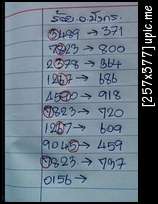 ร้อย อ.มังกร.
3489 → 371
7823 → 800
2378 → 364
1267 → 686
4590 → 918
7823 → 720
1267 → 609
9045 → 459
7823 → 737
0156 →
[257x377] upic.me